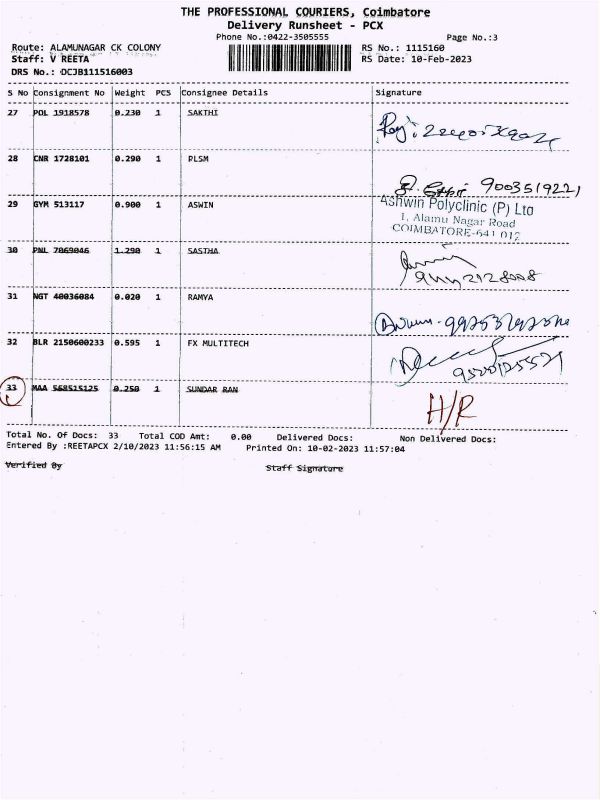 THE PROFESSIONAL COURIERS, Coimbatore
Delivery Runsheet - PCX
Phone No.:0422-3505555 Page No.:3
Route: ALAMUNAGAR CK COLONY RS No.: 1115160
Staff: V REETA RS Date: 10-Feb-2023
DRS No.: DCJB111516003
S No Consignment No Weight PCS Consignee Details Signature
27 POL 1918578 0.230 1 SAKTHI
28 CNR 1728101 0.290 1 PLSM
9003519221
29 GYM 513117 0.900 1 ASWIN Ashwin Polyclinic (P) Ltd
1, Alamu Nagar Road
COIMBATORE-641 012
30 PNL 7069046 1.290 1 SASTHA
31 NGT 40036084 0.020 1 RAMYA
32 BLR 2150600233 0.595 1 FX MULTITECH
33 MAA 568515125 0.250 1 SUNDAR RAN H/R
Total No. Of Docs: 33 Total COD Amt: 0.00 Delivered Docs: Non Delivered Docs:
Entered By :REETAPCX 2/10/2023 11:56:15 AM Printed On: 10-02-2023 11:57:04
Verified By Staff Signature